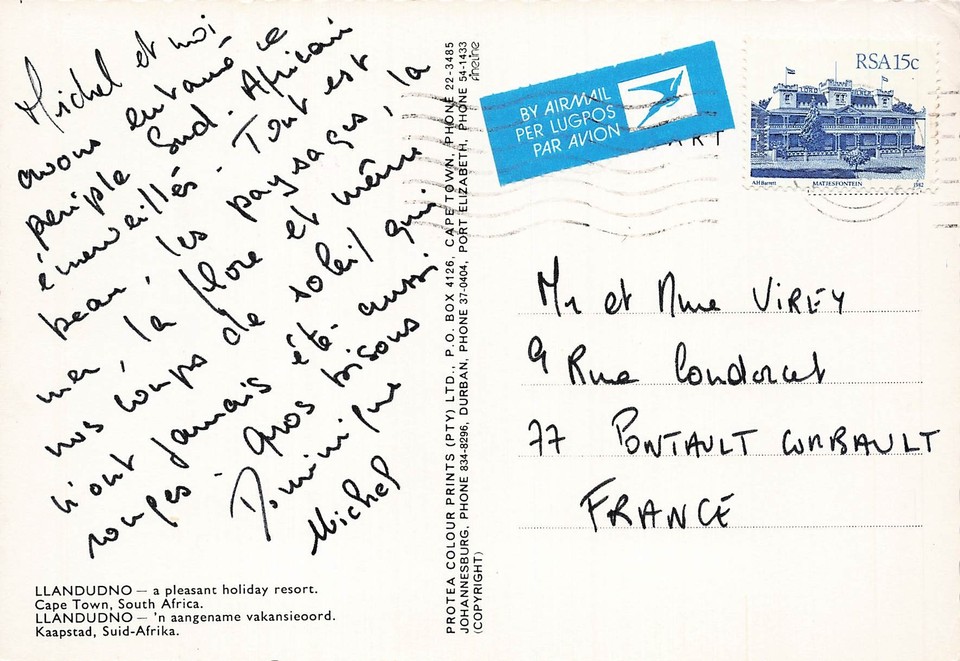 Michel et moi
avons entamé ce
périple Sud. Africain
émerveillés. Tout est
beau, les paysages, la
mer, la flore et même
nos coups de soleil qui
n'ont jamais été aussi
rouges. Gros bisous
Dominique
Michel
LLANDUDNO — a pleasant holiday resort.
Cape Town, South Africa.
LLANDUDNO — 'n aangename vakansieoord.
Kaapstad, Suid-Afrika.
PROTEA COLOUR PRINTS (PTY) LTD., P.O. BOX 4126, CAPE TOWN, PHONE 22-3485
JOHANNESBURG, PHONE 834-8296, DURBAN, PHONE 37-0404, PORT ELIZABETH, PHONE 54-1433
(COPYRIGHT)
BY AIRMAIL
PER LUGPOS
PAR AVION
ART
RSA 15c
AH Barrett MATJESFONTEIN 1982
Mr et Mme VIREY
9 Rue Condorcet
77 PONTAULT COMBAULT
FRANCE